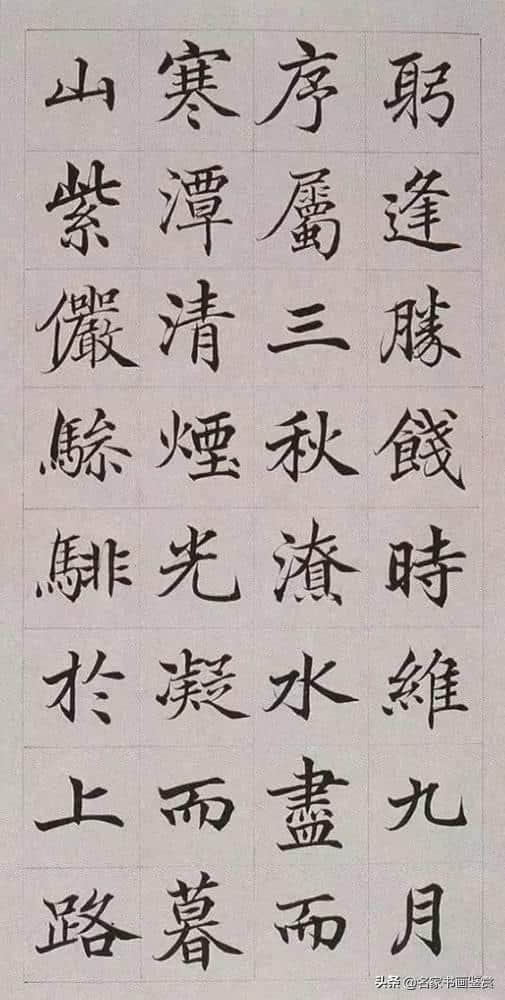 躬逢勝餞時維九月
序屬三秋潦水盡而
寒潭清煙光凝而暮
山紫儼驂騑於上路
头条 @名家书画鉴赏